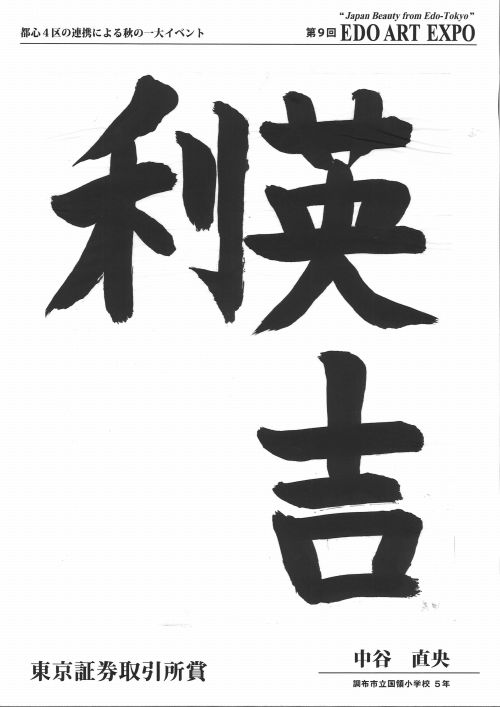 “Japan Beauty from Edo-Tokyo”
都心4区の連携による秋の一大イベント
第9回 EDO ART EXPO
英吉
利
東京証券取引所賞
中谷 直央
調布市立国領小学校 5年